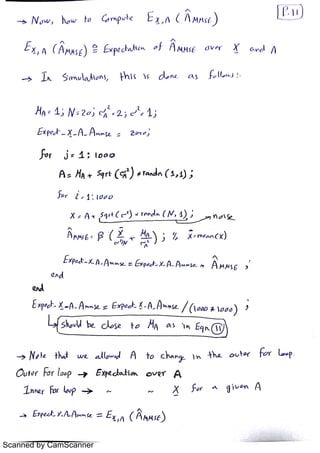 P.11
→ Now, how to Compute E_X,A (Â_MMSE)
E_X,A (Â_MMSE) ≜ Expectation of Â_MMSE over X and A
→ In Simulations, this is done as follows:-
μ_A = 1; N=20; σ_A^2 = 2; σ^2 = 1;
Expect_X_A_Ammse = zero;
for j = 1:1000
A = μ_A + sqrt(σ_A^2) * randn(1,1);
for i = 1:1000
X = A + sqrt(σ^2) * randn(N,1); → noise
Â_MMSE = β (X̄/(σ^2/N) + μ_A/σ_A^2); % X̄ = mean(X)
Expect_X_A_Ammse = Expect_X_A_Ammse + Â_MMSE;
end
end
Expect_X_A_Ammse = Expect_X_A_Ammse /(1000*1000);
↳ should be close to μ_A as in Eqn (11)
→ Note that we allowed A to change in the outer for loop.
Outer for loop → Expectation over A
Inner for loop → ~ ~ X for a given A
→ Expect_X_A_Ammse = E_X,A (Â_MMSE)
Scanned by CamScanner